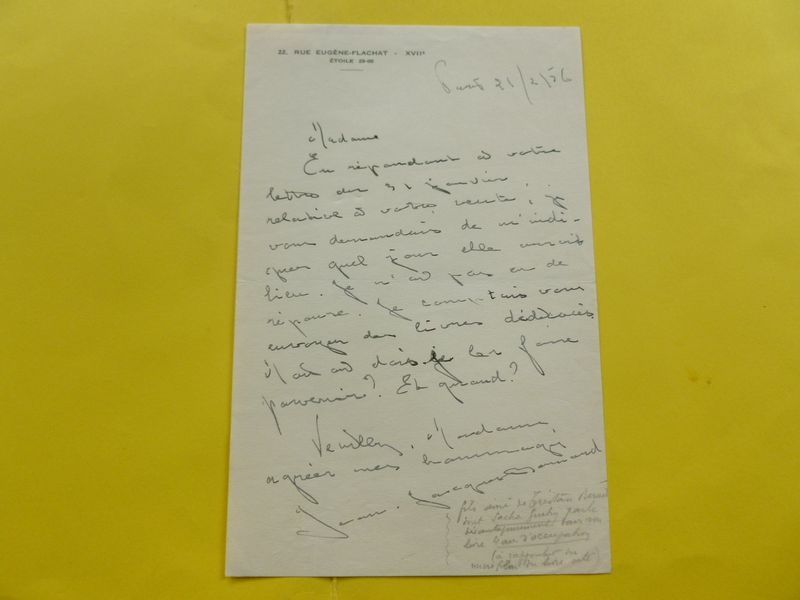 22, RUE EUGÈNE-FLACHAT - XVIIe
ÉTOILE
Paris 21/2/56
Madame
En répondant à votre
lettre du 31 janvier
relative à votre vente, je
vous demandais de m'indi-
quer quel jour elle aurait
lieu. Je n'ai pas eu de
réponse. Je comptais vous
envoyer des livres dédicacés.
Mais où dois-je les faire
parvenir? Et quand?
Veuillez, Madame,
agréer mes hommages
Jean-Jacques Bernard
fils aîné de Tristan Bernard
dont Sacha Guitry parle
dans son
livre 4 ans d'occupations